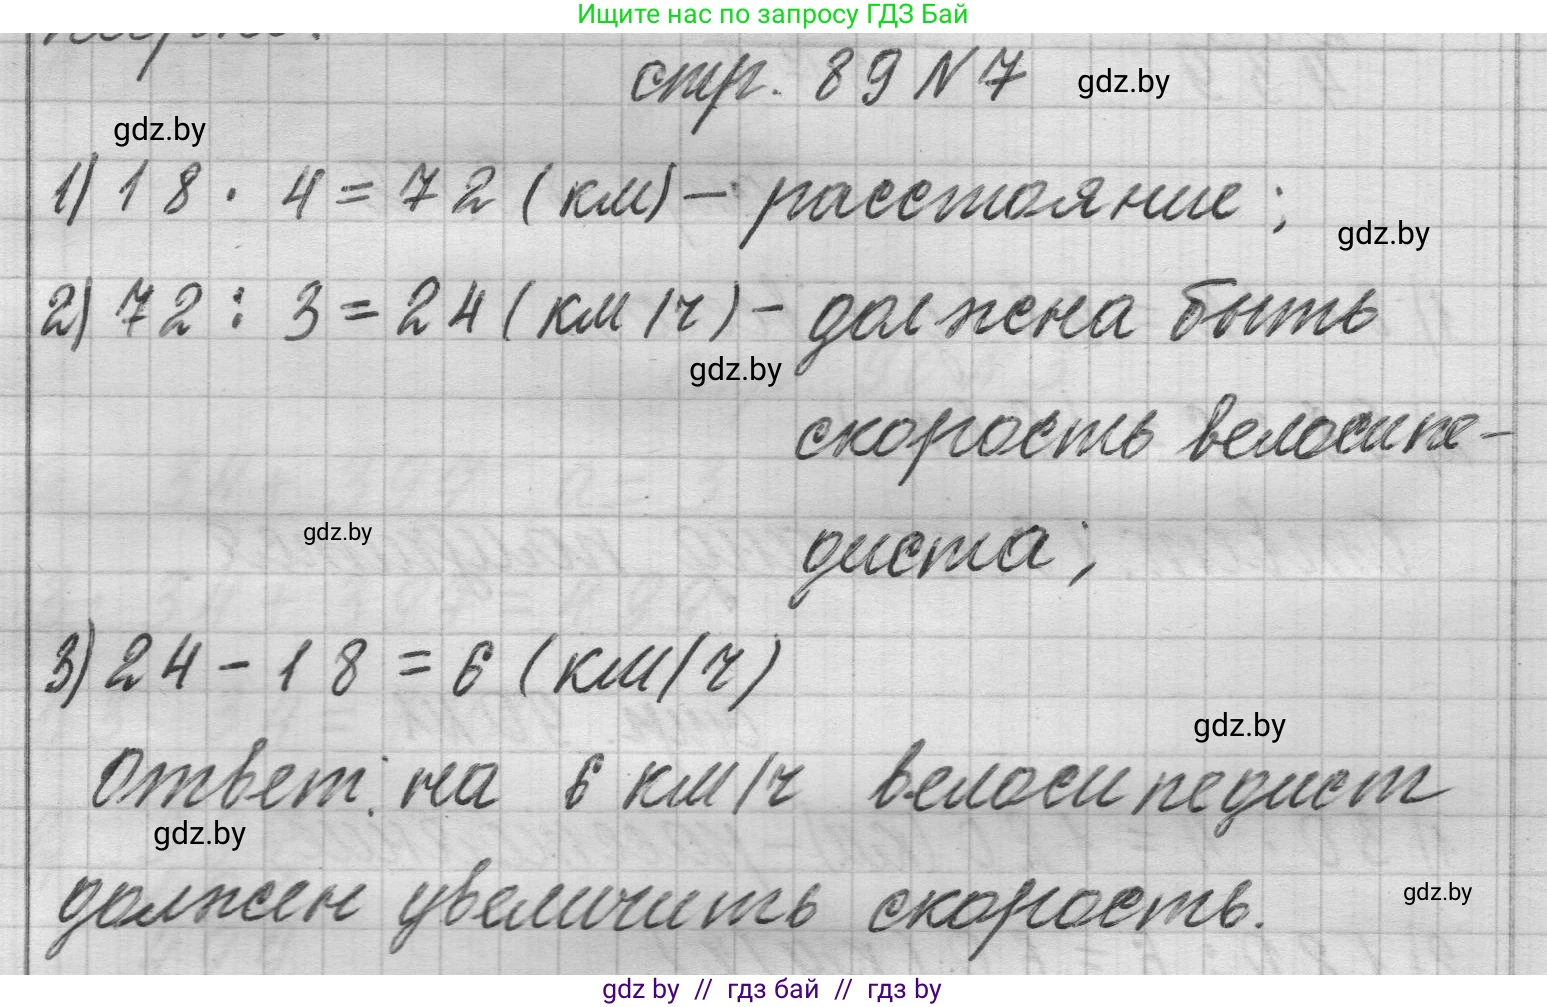 Ищите нас по запросу ГДЗ Бай
стр. 89 N 7
gdz.by
gdz.by
1) 18 · 4 = 72 (км) - расстояние;
gdz.by
2) 72 : 3 = 24 (км/ч) - должена быть
gdz.by
скорость велосипе-
gdz.by
диста;
3) 24 - 18 = 6 (км/ч)
gdz.by
Ответ: на 6 км/ч велосипедист
gdz.by
должен увеличить скорость.
gdz.by
gdz by // гдз бай // гдз by